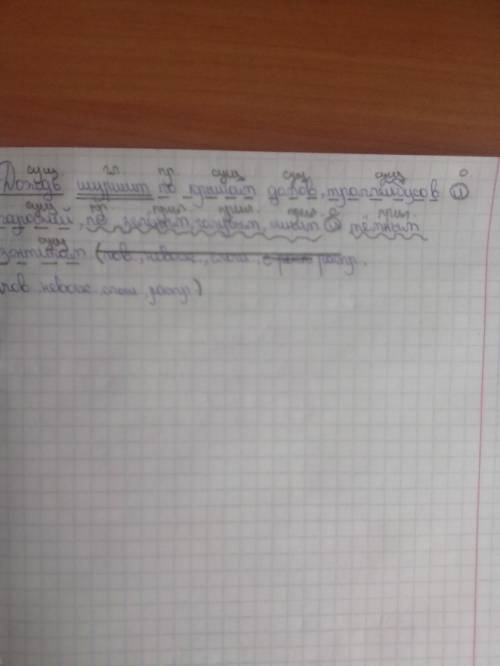 сущ гл. пр. сущ сущ сущ о
Дождь шуршит по крышам домов, троллейбусов и
сущ пр прил. прил. прил. о прил.
гаражей, по зелёным, голубым, синим и тёмным
сущ
зонтикам (пов., невоск., слож., распр.
пов. невоск. слож. распр.)